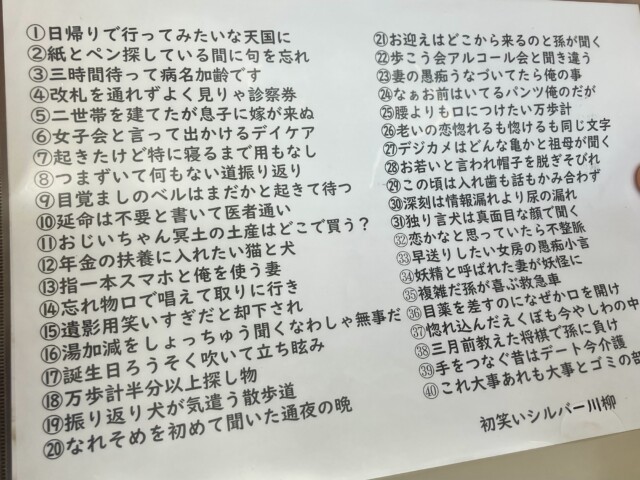 ①日帰りで行ってみたいな天国に
②紙とペン探している間に句を忘れ
③三時間待って病名加齢です
④改札を通れずよく見りゃ診察券
⑤二世帯を建てたが息子に嫁が来ぬ
⑥女子会と言って出かけるデイケア
⑦起きたけど特に寝るまで用もなし
⑧つまずいて何もない道振り返り
⑨目覚ましのベルはまだかと起きて待つ
⑩延命は不要と書いて医者通い
⑪おじいちゃん冥土の土産はどこで買う？
⑫年金の扶養に入れたい猫と犬
⑬指一本スマホと俺を使う妻
⑭忘れ物口で唱えて取りに行き
⑮遺影用笑いすぎだと却下され
⑯湯加減をしょっちゅう聞くなわしゃ無事だ
⑰誕生日ろうそく吹いて立ち眩み
⑱万歩計半分以上探し物
⑲振り返り犬が気遣う散歩道
⑳なれそめを初めて聞いた通夜の晩
㉑お迎えはどこから来るのと孫が聞く
㉒歩こう会アルコール会と聞き違う
㉓妻の愚痴うなづいてたら俺の事
㉔なぁお前はいてるパンツ俺のだが
㉕腰よりも口につけたい万歩計
㉖老いの恋惚れるも惚けるも同じ文字
㉗デジカメはどんな亀かと祖母が聞く
㉘お若いと言われ帽子を脱ぎそびれ
㉙この頃は入れ歯も話もかみ合わず
㉚深刻は情報漏れより尿の漏れ
㉛独り言犬は真面目な顔で聞く
㉜恋かなと思っていたら不整脈
㉝早送りしたい女房の愚痴小言
㉞妖精と呼ばれた妻が妖怪に
㉟複雑だ孫が喜ぶ救急車
㊱目薬を差すのになぜか口を開け
㊲惚れ込んだえくぼも今やしわの中
㊳三月前教えた将棋で孫に負け
㊴手をつなぐ昔はデート今介護
㊵これ大事あれも大事とゴミの部
初笑いシルバー川柳